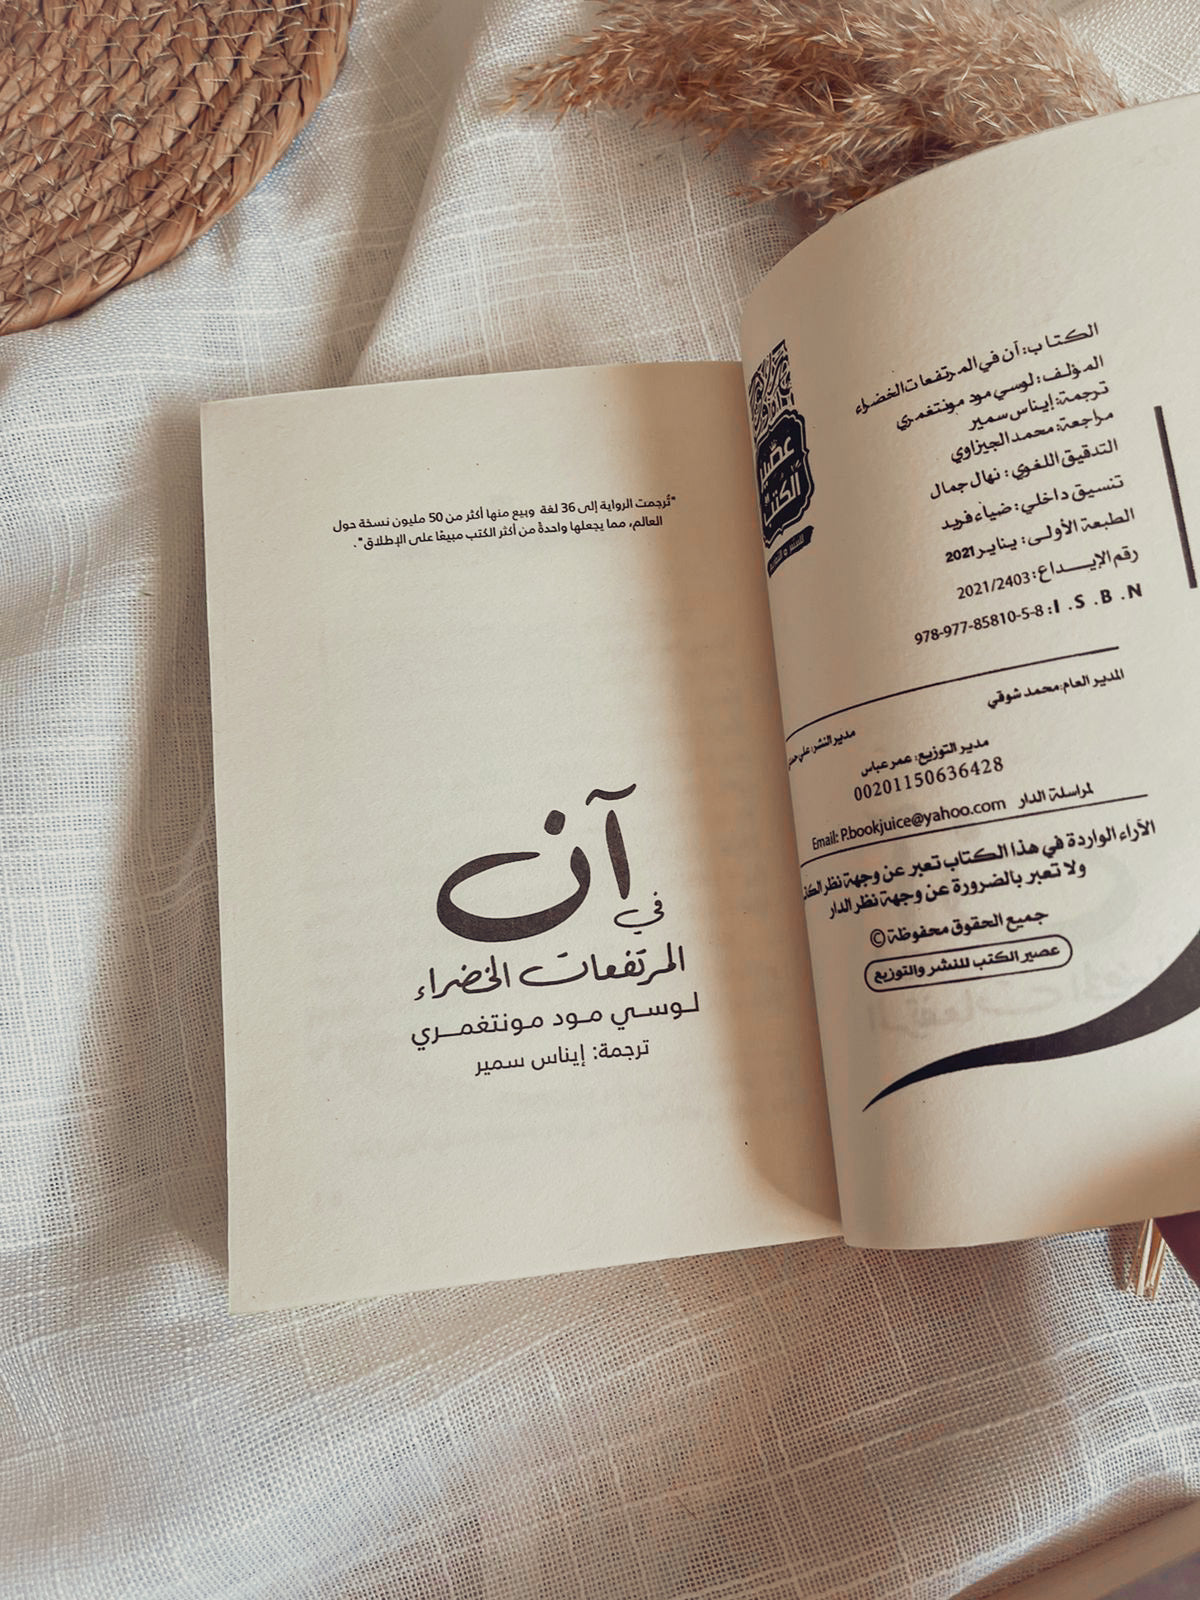 الكتاب: آن في المرتفعات الخضراء
المؤلف: لوسي مود مونتغمري
ترجمة: إيناس سمير
مراجعة: محمد الجيزاوي
التدقيق اللغوي: نهال جمال
تنسيق داخلي: ضياء فريد
الطبعة الأولى: يناير 2021
رقم الإيداع: 2021/2403
I.S.B.N: 978-977-85810-5-8
المدير العام: محمد شوقي
مدير النشر: علي
مدير التوزيع: عمر عباس
00201150636428
لمراسلة الدار Email: P.bookjuice@yahoo.com
الآراء الواردة في هذا الكتاب تعبر عن وجهة نظر
ولا تعبر بالضرورة عن وجهة نظر الدار
جميع الحقوق محفوظة ©
عصير الكتب للنشر والتوزيع
عصير
الكتب
للنشر و التوزيع
"تُرجمت الرواية إلى 36 لغة وبيع منها أكثر من 50 مليون نسخة حول
العالم، مما يجعلها واحدةً من أكثر الكتب مبيعًا على الإطلاق".
آن
في
المرتفعات الخضراء
لوسي مود مونتغمري
ترجمة: إيناس سمير